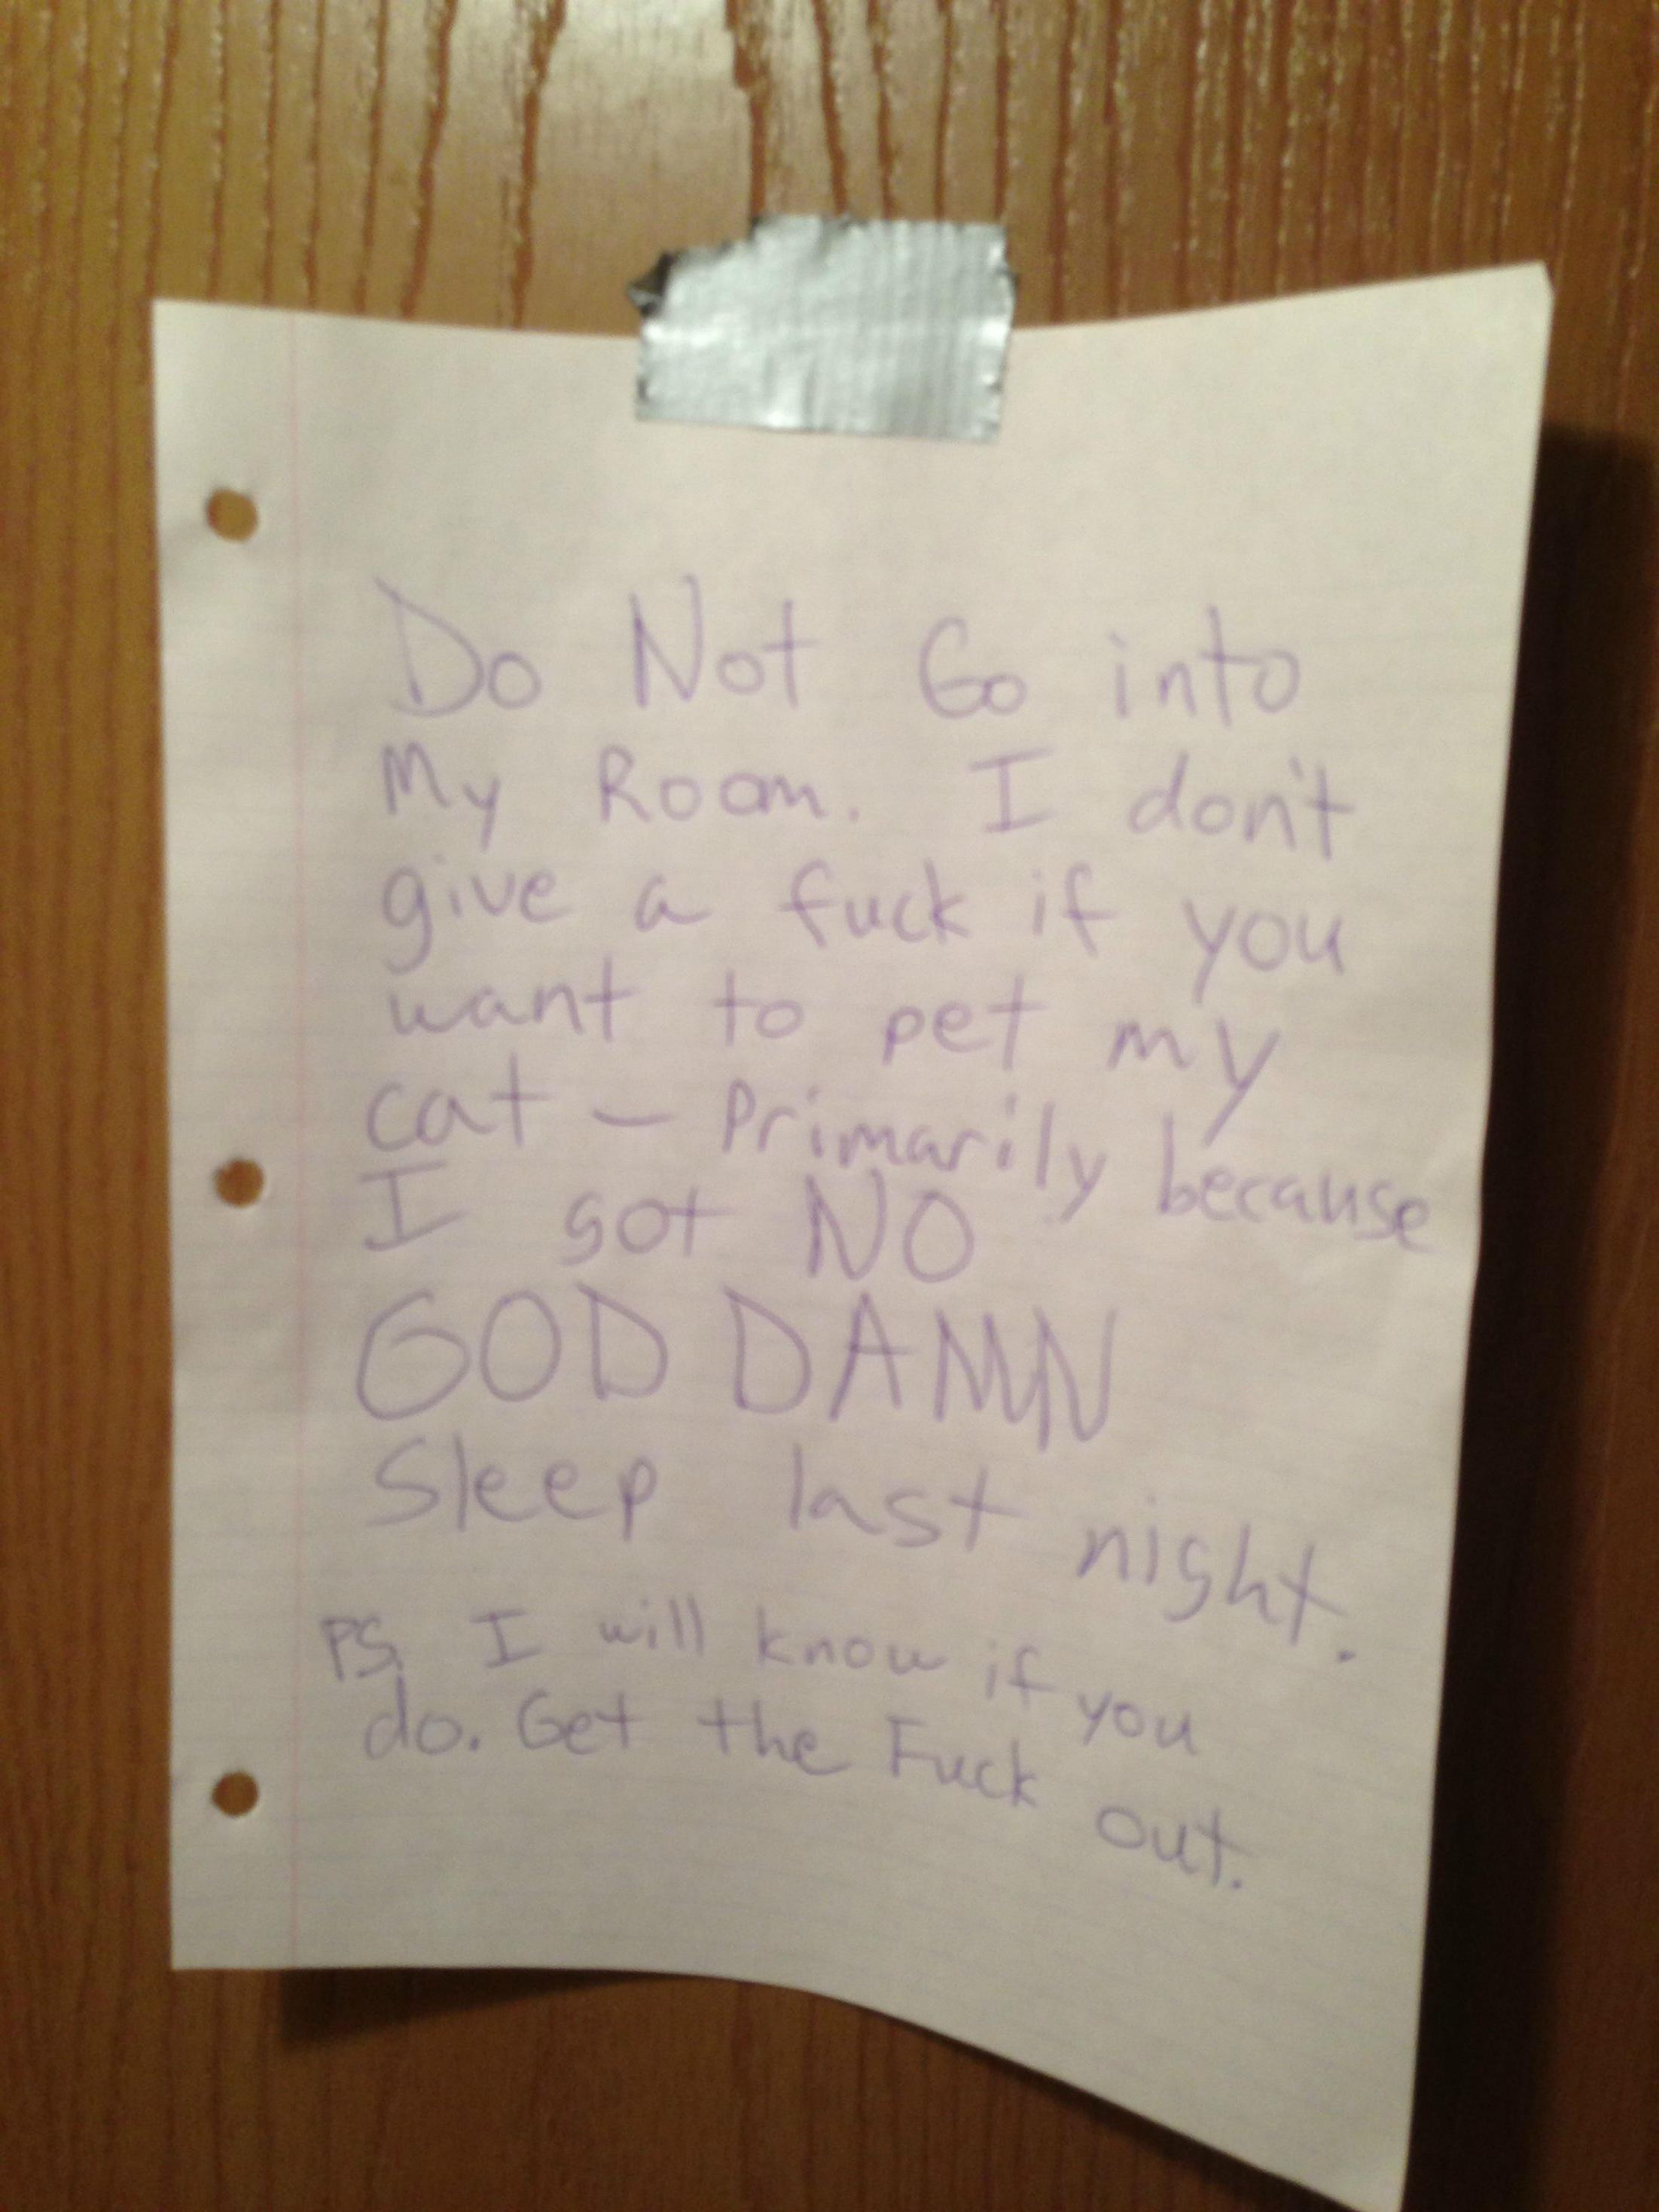 Do Not Go into
My Room. I don't
give a fuck if you
want to pet my
cat – Primarily because
I got NO
GOD DAMN
Sleep last night.
PS. I will know if you
do. Get the Fuck out.